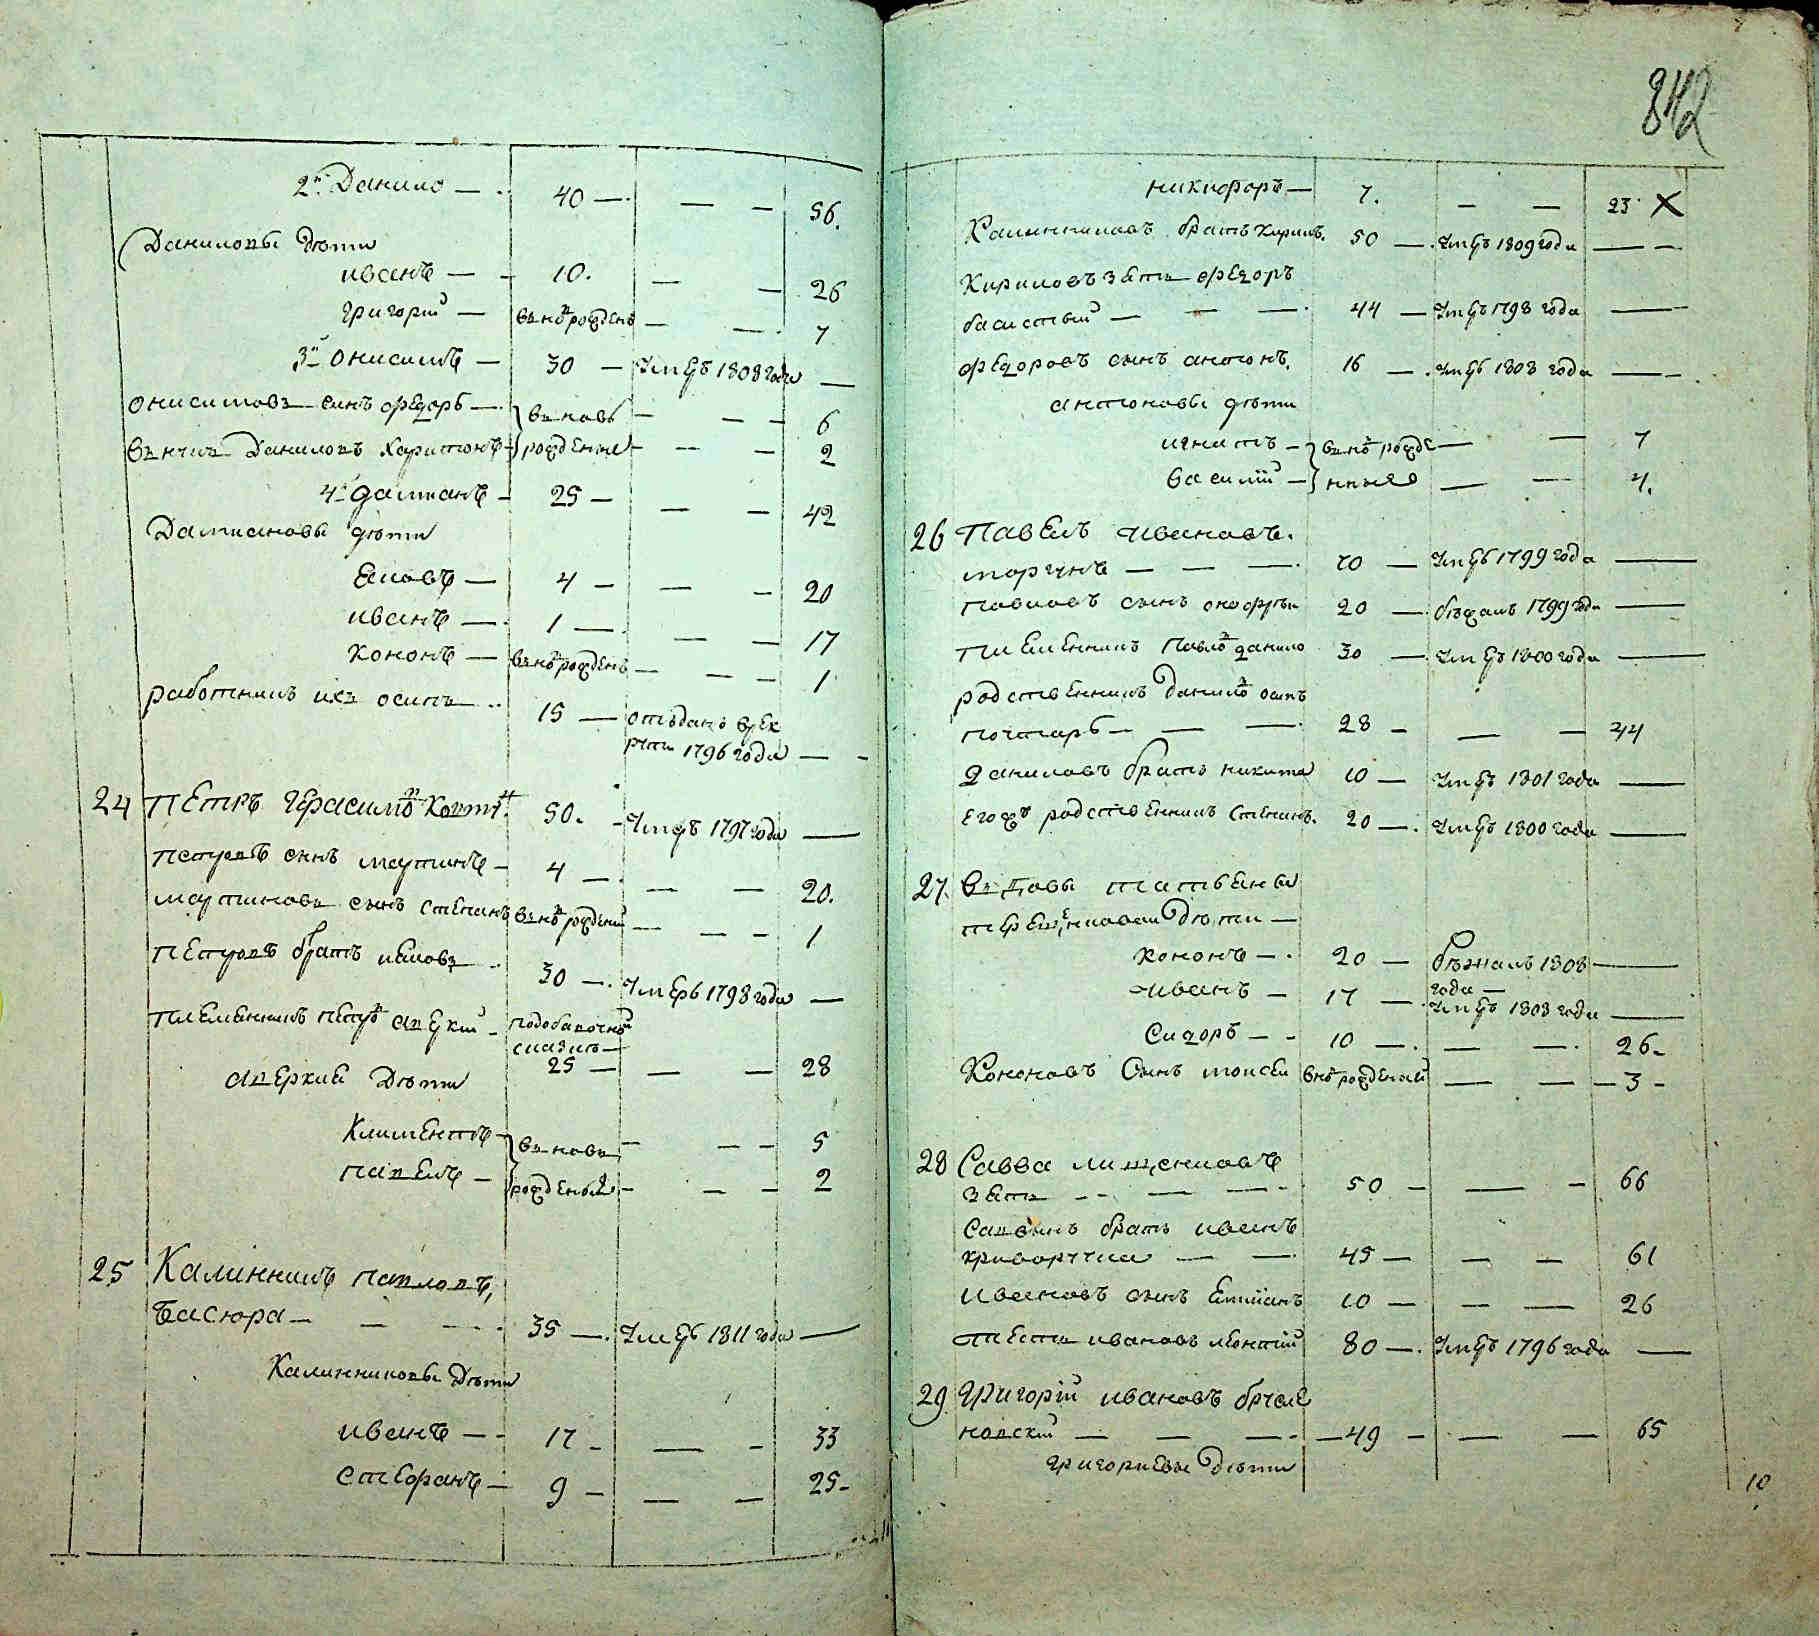 842
2й Данило — 40 — — — 56.
Даниловы дѣти
иванъ — 10. — — 26
григорий — вновь рожденъ — — 7
3й онисимъ — 30 — умеръ 1808 года —
онисимовъ синъ федоръ — вновь — — 6
внукъ Даниловъ харитонъ — рожденные — — 2
4й дамианъ — 25 — — — 42
Дамиановы дѣти
яковъ — 4 — — — 20
иванъ — 1 — — — 17
кононъ — вновь рожденъ — — 1
работникъ ихъ осипъ — 15 — отъданъ врек
руты 1796 года —
24 Петръ Герасимовъ 50. — умеръ 1797 года —
Петровъ синъ мартинъ — 4 — — — 20.
мартиновъ сынъ степанъ вновь рожденъ — — 1
Петровъ братъ яковъ 30 — умеръ 1798 года —
племенникъ петровъ аверкий — подобавочной
сказки —
25 — — — 28
аверкия Дѣти
Климентъ — вновь — — 5
павелъ — рожденные — — 2
25 Калинникъ павловъ,
Басюра — — — 35 — умеръ 1811 года —
Калинниковы Дѣти
иванъ — 17 — — — 33
стефанъ — 9 — — — 25 —
никифоръ — 7. — — 23 X
Калинниковъ братъ кирилъ. 50 — умеръ 1809 года —
Кириловъ зять федоръ
басистый — — — 44 — умеръ 1798 года —
федоровъ сынъ антонъ. 16 — умеръ 1808 года —
антоновы дѣти
игнатъ — вновь рожде — — 7
василий — нные — — 4.
26 Павелъ Ивановъ.
моргунъ — — — 70 — умеръ 1799 года —
павловъ сынъ онофрѣй 20 — бѣжалъ 1799 года —
племенникъ Павловъ данило 30 — умеръ 1800 года —
родственникъ Даниловъ осипъ
почтарь — — — 28 — — — 44
Даниловъ братъ никита 10 — умеръ 1801 года —
егожъ родственникъ степанъ. 20 — умеръ 1800 года —
27. Вдовы татьяны
терещенковой Дѣти —
кононъ — 20 — бѣжалъ 1808
года —
Иванъ — 17 — умеръ 1808 года —
Сидоръ — 10 — — — 26 —
Кононовъ Сынъ моисей вновь рожденный — — 3 —
28 Савва лищенковъ
зять — — — 50 — — — 66
Саввинъ братъ иванъ
криворучка — — 45 — — — 61
Ивановъ сынъ Емиянъ 10 — — — 26
тесть ивановъ леонтий 80 — умеръ 1796 года —
29 Григорий ивановъ
новский — — — 49 — — — 65
григориевы дѣти
10